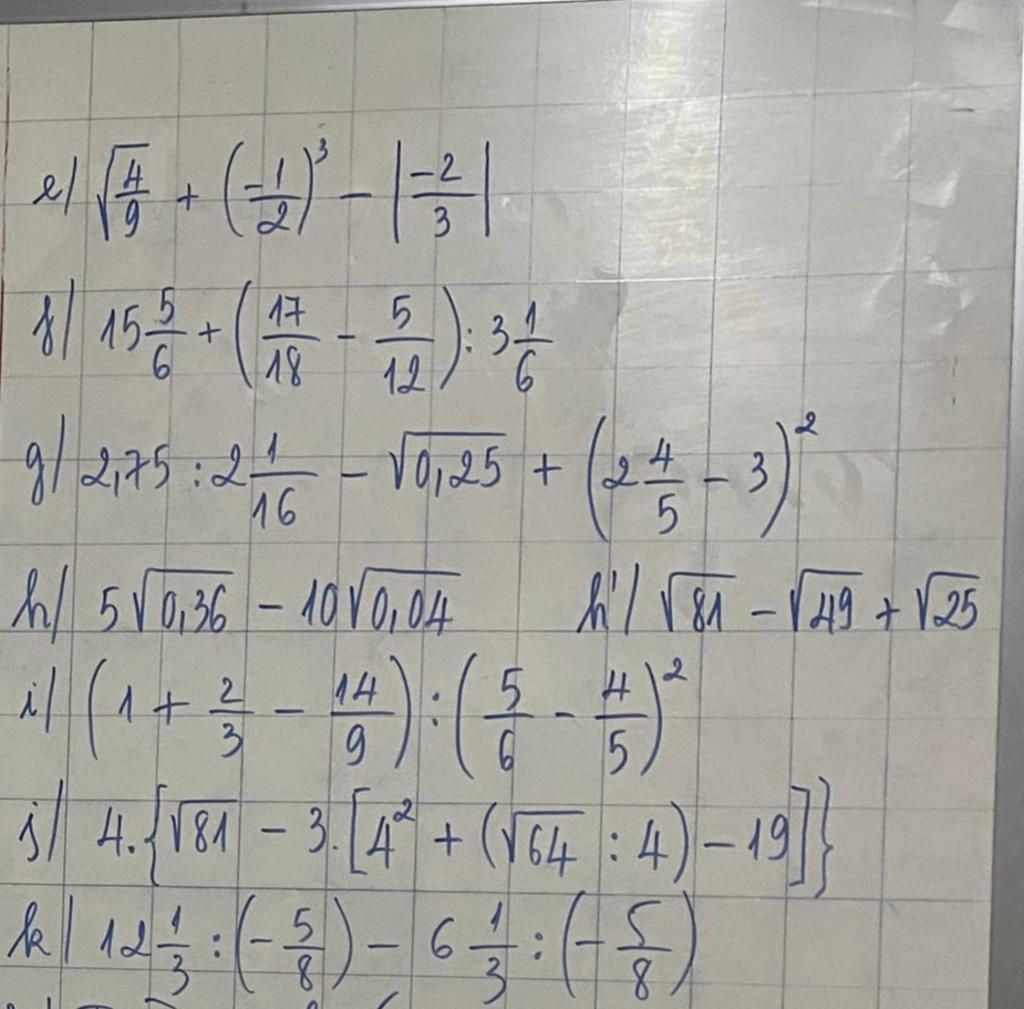 e/ √(4/9) + (-1/2)³ - |-2/3|
f/ 15 5/6 + (17/18 - 5/12) : 3 1/6
g/ 2,75 : 2 1/16 - √0,25 + (2 4/5 - 3)²
h/ 5√0,36 - 10√0,04 h'/ √81 - √49 + √25
i/ (1 + 2/3 - 14/9) : (5/6 - 4/5)²
j/ 4.{√81 - 3.[4² + (√64 : 4) - 19]}
k/ 12 1/3 : (-5/8) - 6 1/3 : (-5/8)